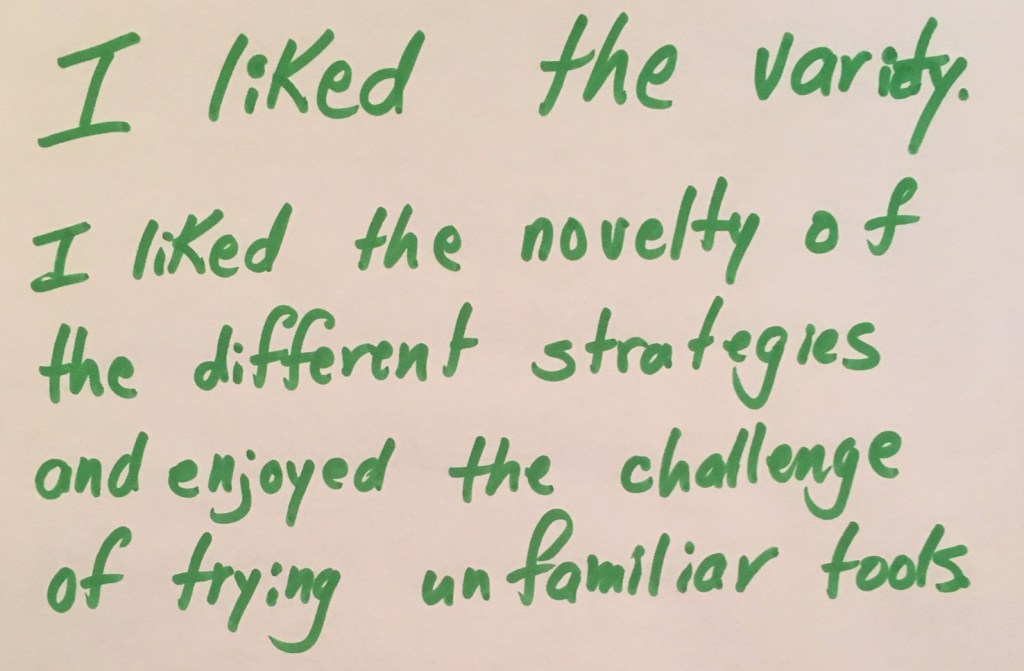 I liked the varidy.
I liked the novelty of
the different strategies
and enjoyed the challenge
of trying unfamiliar tools